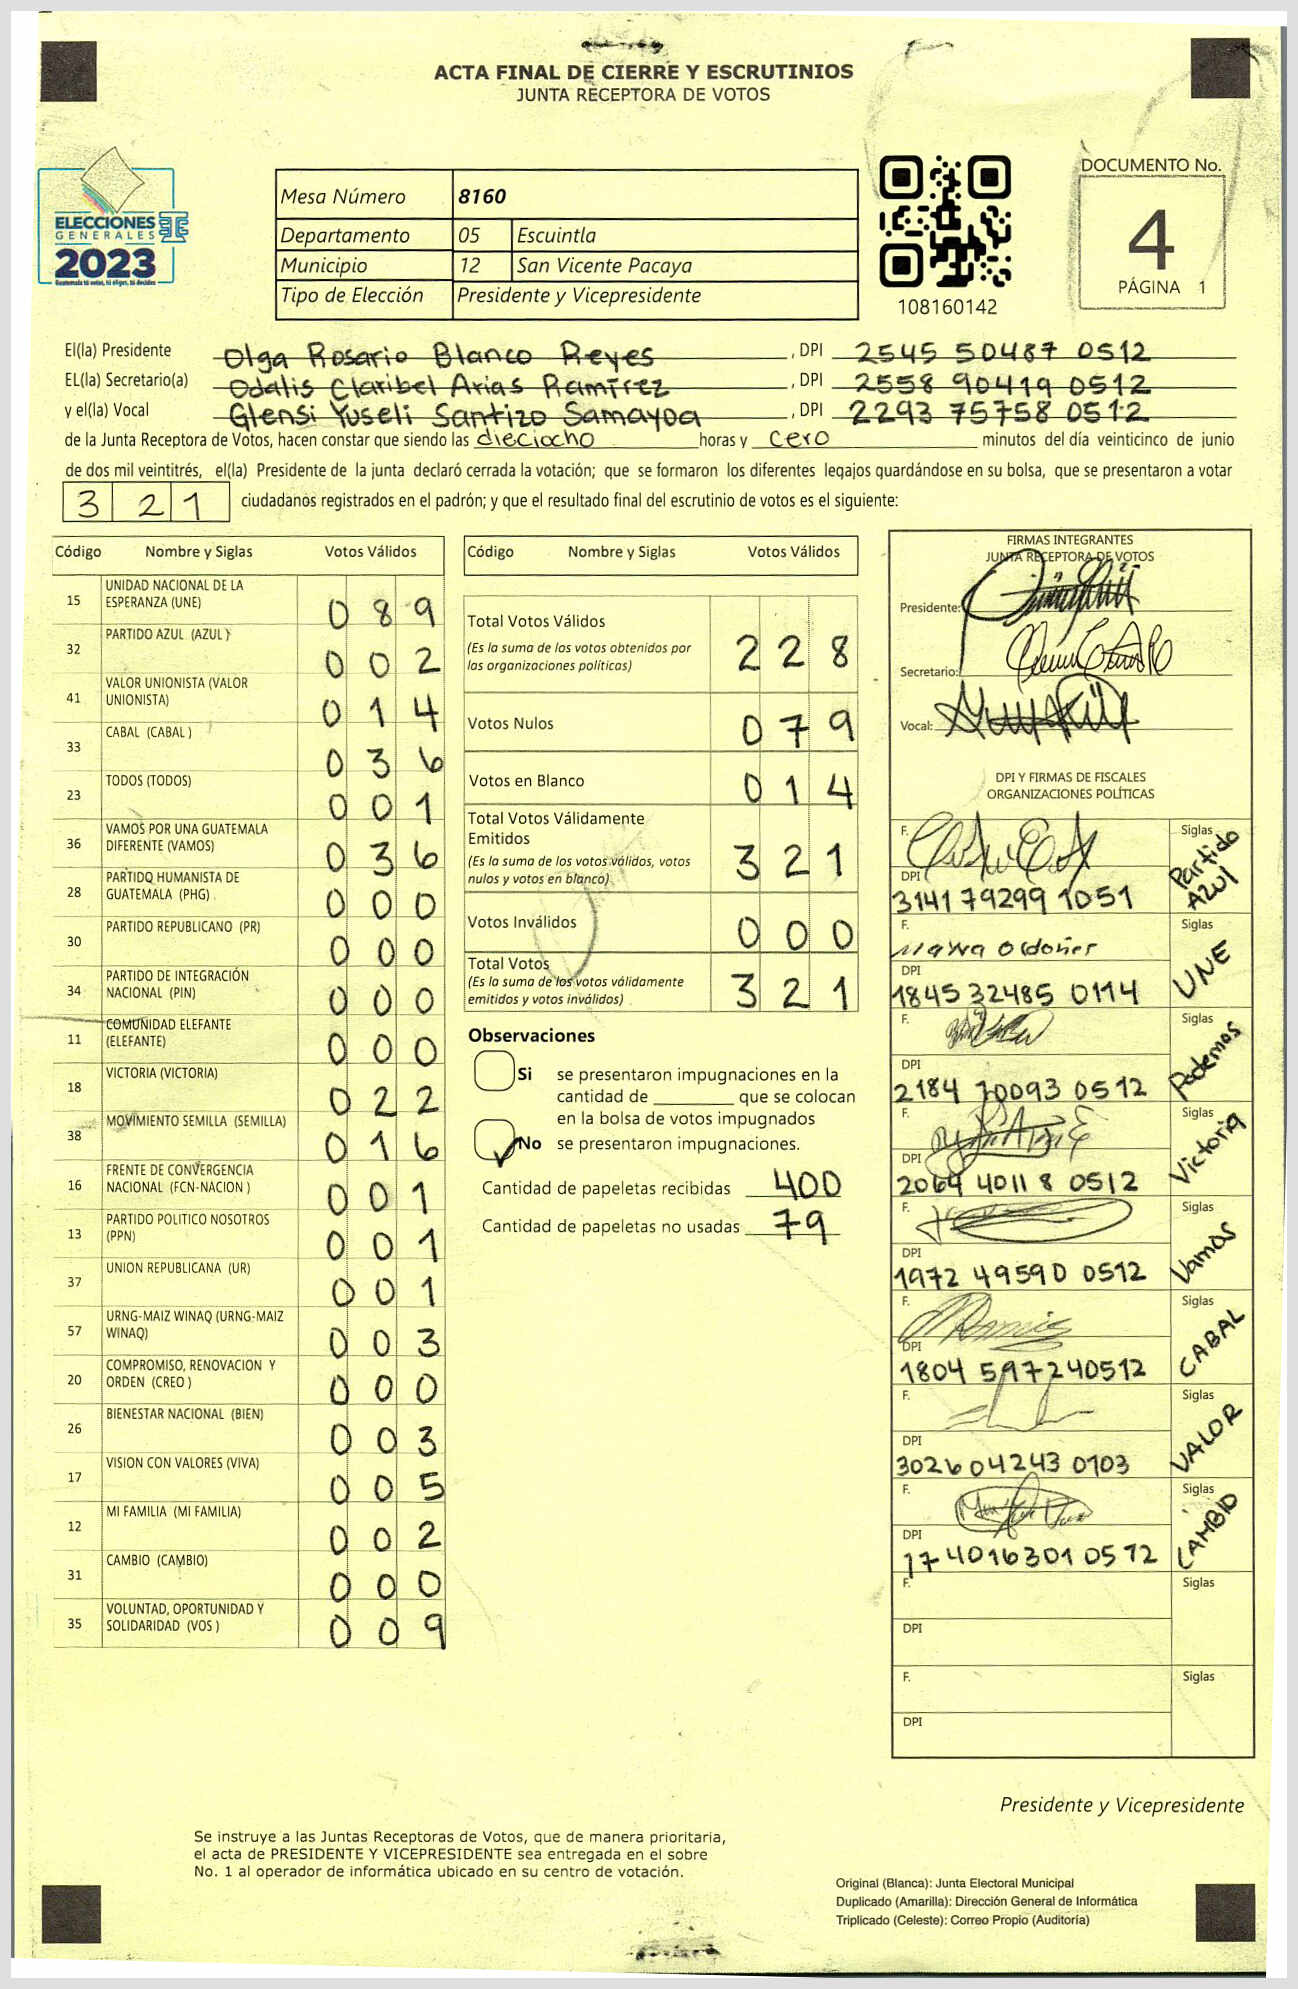 ACTA FINAL DE CIERRE Y ESCRUTINIOS
JUNTA RECEPTORA DE VOTOS
ELECCIONES
GENERALES
2023
Guatemala tú votas, tú eliges, tú decides
Mesa Número 8160
Departamento 05 Escuintla
Municipio 12 San Vicente Pacaya
Tipo de Elección Presidente y Vicepresidente
108160142
DOCUMENTO No.
4
PÁGINA 1
El(la) Presidente Olga Rosario Blanco Reyes , DPI 2545 50487 0512
EL(la) Secretario(a) Odalis Claribel Arias Ramírez , DPI 2558 90419 0512
y el(la) Vocal Glensi Yuseli Santizo Samayoa , DPI 2293 75758 0512
de la Junta Receptora de Votos, hacen constar que siendo las dieciocho horas y cero minutos del día veinticinco de junio
de dos mil veintitrés, el(la) Presidente de la junta declaró cerrada la votación; que se formaron los diferentes legajos guardándose en su bolsa, que se presentaron a votar
321 ciudadanos registrados en el padrón; y que el resultado final del escrutinio de votos es el siguiente:
Código Nombre y Siglas Votos Válidos
15 UNIDAD NACIONAL DE LA ESPERANZA (UNE) 089
32 PARTIDO AZUL (AZUL ) 002
41 VALOR UNIONISTA (VALOR UNIONISTA) 014
33 CABAL (CABAL ) 036
23 TODOS (TODOS) 001
36 VAMOS POR UNA GUATEMALA DIFERENTE (VAMOS) 036
28 PARTIDO HUMANISTA DE GUATEMALA (PHG) 000
30 PARTIDO REPUBLICANO (PR) 000
34 PARTIDO DE INTEGRACIÓN NACIONAL (PIN) 000
11 COMUNIDAD ELEFANTE (ELEFANTE) 000
18 VICTORIA (VICTORIA) 022
38 MOVIMIENTO SEMILLA (SEMILLA) 016
16 FRENTE DE CONVERGENCIA NACIONAL (FCN-NACION ) 001
13 PARTIDO POLITICO NOSOTROS (PPN) 001
37 UNION REPUBLICANA (UR) 001
57 URNG-MAIZ WINAQ (URNG-MAIZ WINAQ) 003
20 COMPROMISO, RENOVACION Y ORDEN (CREO ) 000
26 BIENESTAR NACIONAL (BIEN) 003
17 VISION CON VALORES (VIVA) 005
12 MI FAMILIA (MI FAMILIA) 002
31 CAMBIO (CAMBIO) 000
35 VOLUNTAD, OPORTUNIDAD Y SOLIDARIDAD (VOS ) 009
Código Nombre y Siglas Votos Válidos
Total Votos Válidos 228
(Es la suma de los votos obtenidos por
las organizaciones políticas)
Votos Nulos 079
Votos en Blanco 014
Total Votos Válidamente
Emitidos 321
(Es la suma de los votos válidos, votos
nulos y votos en blanco)
Votos Inválidos 000
Total Votos 321
(Es la suma de los votos válidamente
emitidos y votos inválidos)
Observaciones
Si se presentaron impugnaciones en la
cantidad de ________ que se colocan
en la bolsa de votos impugnados
No se presentaron impugnaciones.
Cantidad de papeletas recibidas 400
Cantidad de papeletas no usadas 79
FIRMAS INTEGRANTES
JUNTA RECEPTORA DE VOTOS
Presidente:
Secretario:
Vocal:
DPI Y FIRMAS DE FISCALES
ORGANIZACIONES POLÍTICAS
F. Siglas Partido Azul
DPI 3141 79299 1051
F. Siglas UNE
DPI 1845 32485 0114
F. Siglas Podemos
DPI 2184 70093 0512
F. Siglas Victoria
DPI 2064 40118 0512
F. Siglas Vamos
DPI 1972 49590 0512
F. Siglas CABAL
DPI 1804 597240512
F. Siglas VALOR
DPI 3026 04243 0103
F. Siglas CAMBIO
DPI 1740163010512
F. Siglas
DPI
F. Siglas
DPI
Presidente y Vicepresidente
Se instruye a las Juntas Receptoras de Votos, que de manera prioritaria,
el acta de PRESIDENTE Y VICEPRESIDENTE sea entregada en el sobre
No. 1 al operador de informática ubicado en su centro de votación.
Original (Blanca): Junta Electoral Municipal
Duplicado (Amarilla): Dirección General de Informática
Triplicado (Celeste): Correo Propio (Auditoría)